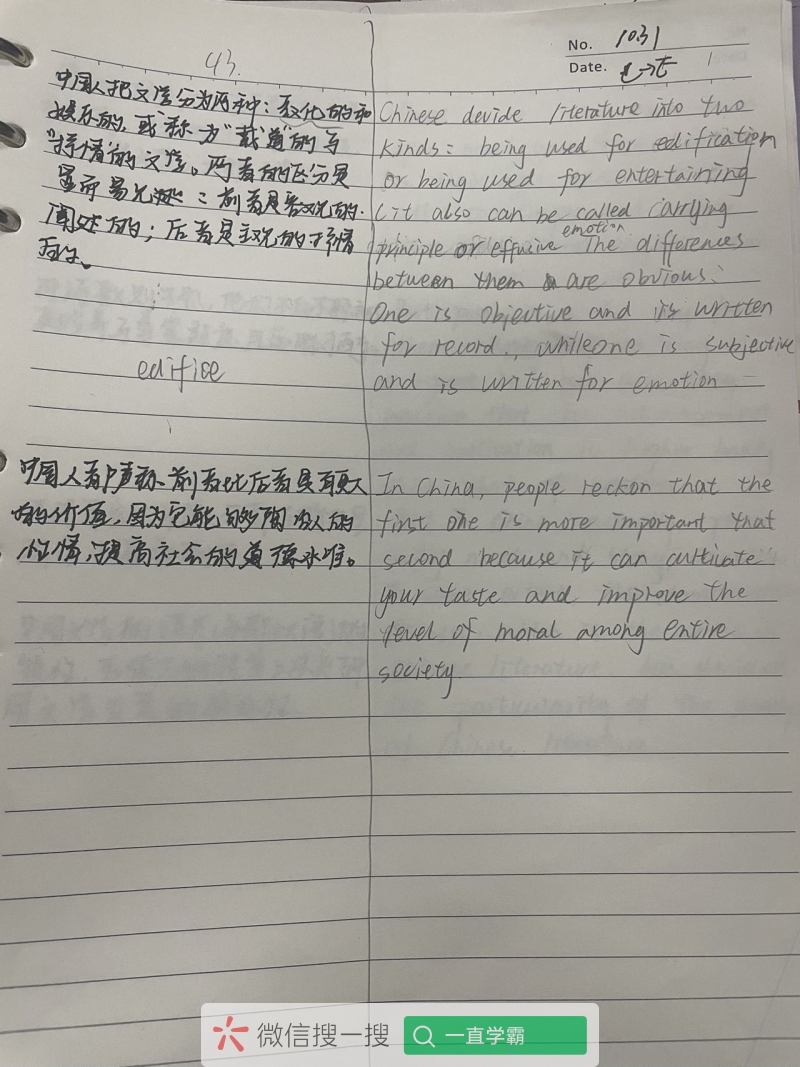 43.
No. 1031
Date.
中国人把文学分为两种：教化的和
娱乐的，或称为“载道”的与
“抒情”的文学。两者的区分是
显而易见的：前者是客观的.
阐述的；后者是主观的.抒情
edifice
Chinese devide literature into two
kinds: being used for edification
or being used for entertaining
(it also can be called carrying
principle or effusive emotion The differences
between them are obvious:
One is objective and is written
for record., while one is subjective
and is written for emotion
中国人都声称、前者比后者具有更大
的价值，因为它能够陶冶人的
性情，提高社会的道德水准。
In China, people reckon that the
first one is more important that
second because it can cultivate
your taste and improve the
level of moral among entire
society
微信搜一搜
一直学霸